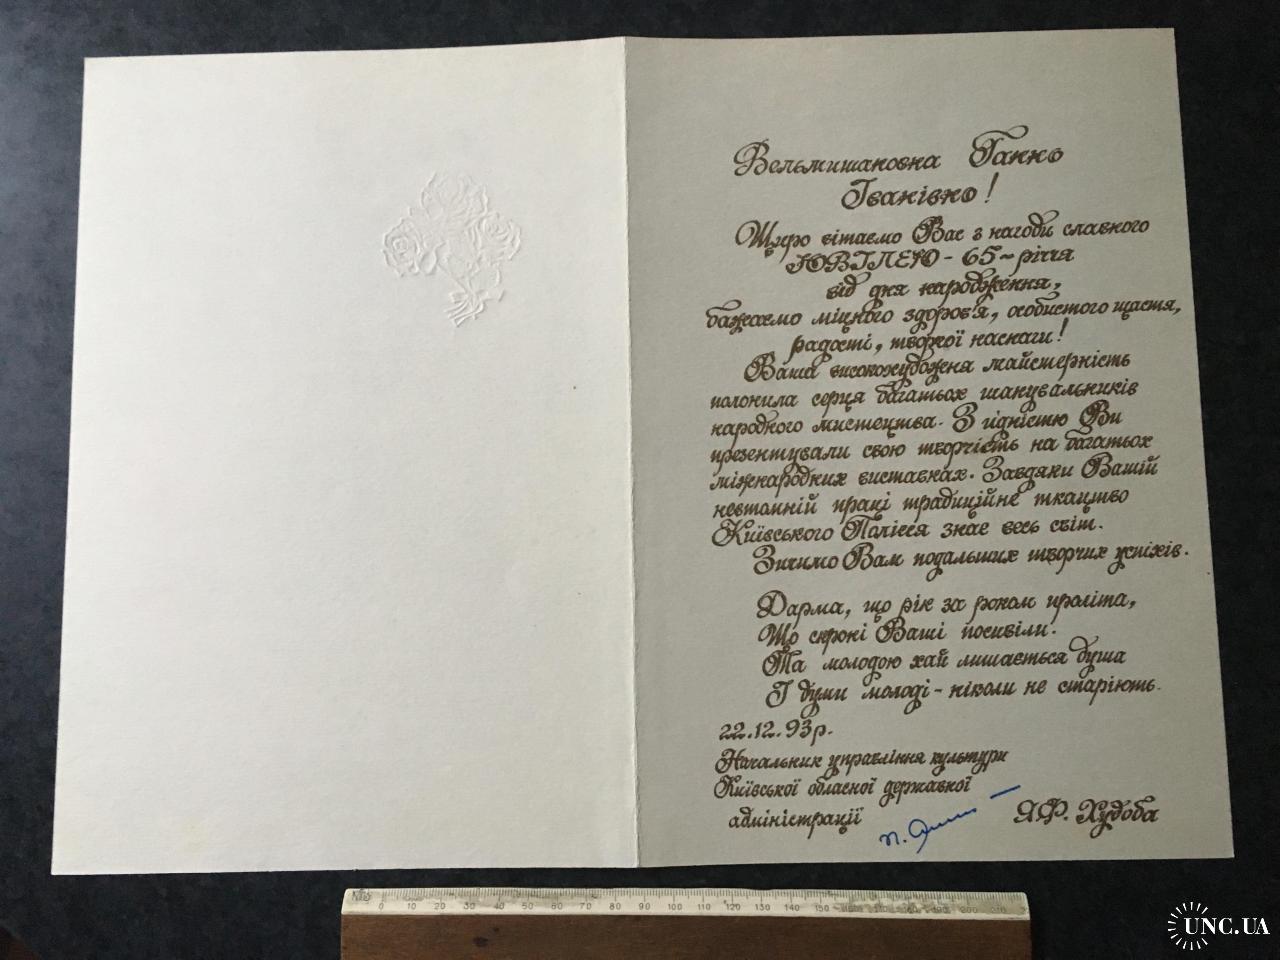 Вельмишановна Ганно
Іванівно!
Щиро вітаємо Вас з нагоди славного
ЮВІЛЕЮ - 65~річчя
від дня народження,
бажаємо міцного здоров'я, особистого щастя,
радості, творчої наснаги!
Ваша високохудожня майстерність
полонила серця багатьох шанувальників
народного мистецтва. З гідністю Ви
презентували свою творчість на багатьох
міжнародних виставках. Завдяки Вашій
невтомній праці традиційне ткацтво
Київського Полісся знає весь світ.
Зичимо Вам подальших творчих успіхів.
Дарма, що рік за роком проліта,
Що скроні Ваші посивіли.
Та молодою хай лишається душа
І думи молоді - ніколи не старіють.
22.12.93р.
Начальник управління культури
Київської обласної державної
адміністрації
Я.Ф. Худоба
0 10 20 30 40 50 60 70 80 90 100 110 120 130 140 150
UNC.UA